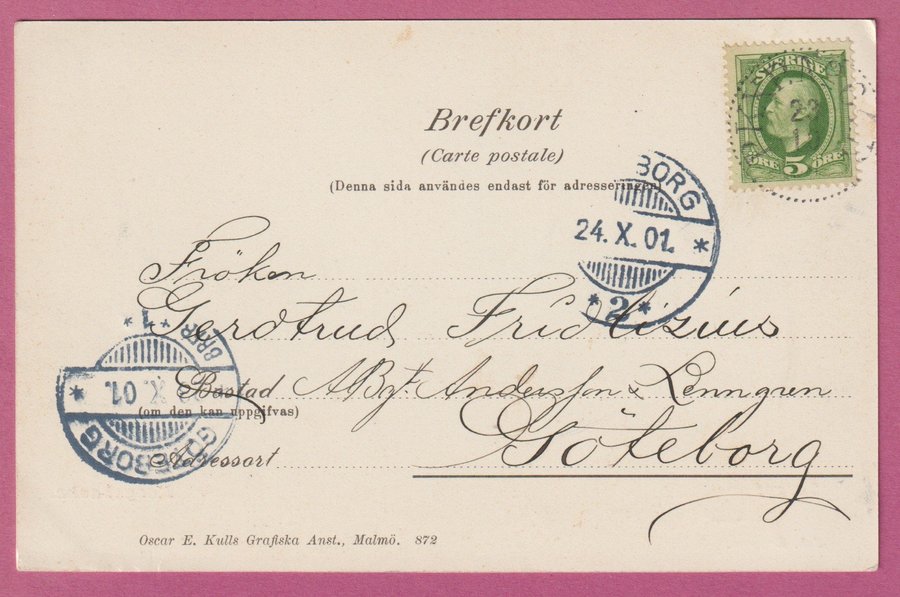 SVERIGE
ÖRE 5 ÖRE
23
Brefkort
(Carte postale)
(Denna sida användes endast för adresseringen)
BORG
24. X. 01.
* 2 *
Fröken
Gerdtrud Fridlizius
Bostad A. Bgt. Andersson & Lenngren
(om den kan uppgifvas)
Göteborg
Adressort
* 1 *
X. 01.
GÖTEBORG
Oscar E. Kulls Grafiska Anst., Malmö. 872